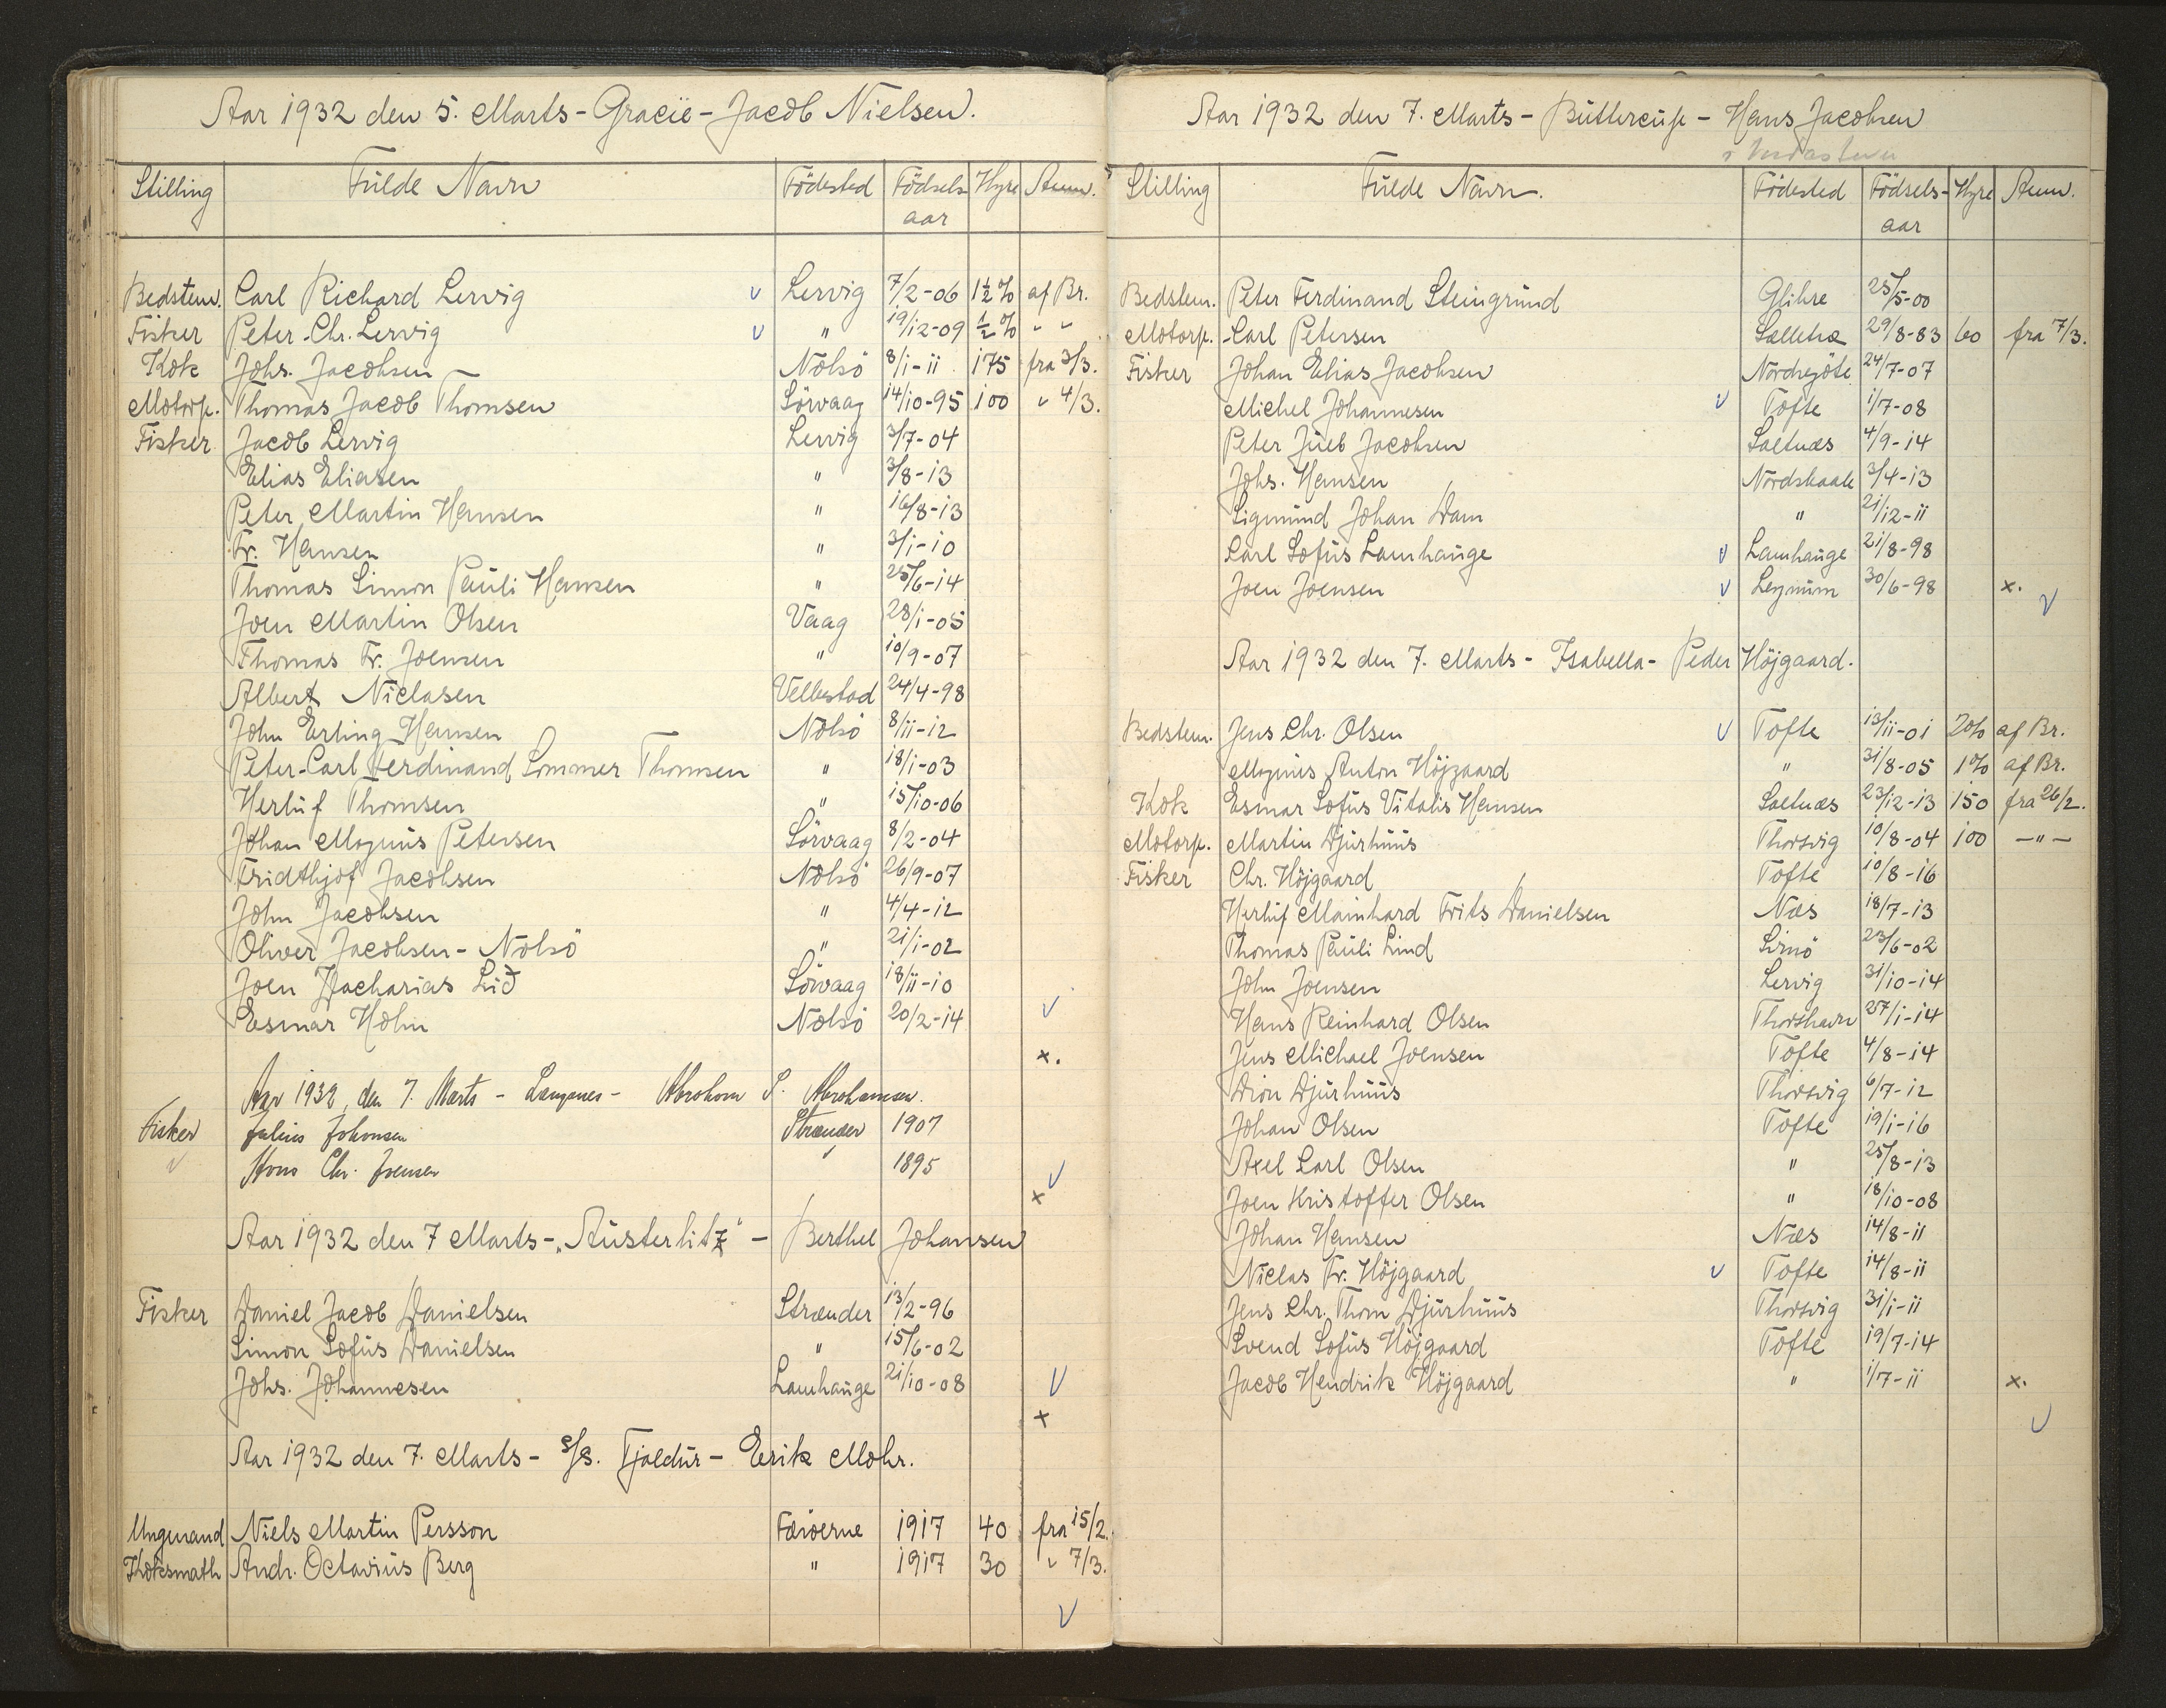 Aar 1932 den 5. Marts - Gracie - Jacob Nielsen.
Stilling Fulde Navn Födested Födsels aar Hyre Anm.
Bedstem. Carl Richard Lervig v Lervig 7/2-06 1½ % af Br.
Fisker Peter Chr. Lervig v " 19/12-09 ½ % " "
Kok Johs. Jacobsen Nolsö 8/1-11 175 fra 3/3.
Motorp. Thomas Jacob Thomsen Sörvaag 14/10-95 100 " 4/3.
Fisker Jacob Lervig Lervig 3/7-04
Elias Eliasen " 3/8-13
Peter Martin Hansen " 16/8-13
Fr. Hansen " 3/1-10
Thomas Simon Pauli Hansen " 25/6-14
Joen Martin Olsen Vaag 28/1-05
Thomas Fr. Joensen " 10/9-07
Albert Niclasen Velbestad 24/4-98
John Erling Hansen Nolsö 8/11-12
Peter Carl Ferdinand Sommer Thomsen " 18/1-03
Herluf Thomsen " 15/10-06
Johan Magnus Petersen Sörvaag 8/2-04
Fridthjof Jacobsen Nolsö 26/9-07
John Jacobsen " 4/4-12
Oliver Jacobsen - Nolsö " 21/1-02
Joen Zacharias Lið Sörvaag 18/11-10
Esmar Holm Nolsö 20/2-14 v
x.
Aar 1932, den 7. Marts - Langanes - Abraham S. Abrahamsen.
Fisker Julius Johansen Strænder 1907
v Hans Chr. Joensen " 1895 v
x
Aar 1932 den 7 Marts - „Austerlitz" - Berthel Johansen
Fisker Daniel Jacob Danielsen Strænder 13/2-96
Simon Sofus Danielsen " 15/6-02
Johs. Johannesen Lamhauge 21/10-08 v
x
Aar 1932 den 7. Marts - s/s. Tjaldur - Erik Mohr.
Ungmand Niels Martin Persson Færöerne 1917 40 fra 15/2.
Koksmath Andr. Octavius Berg " 1917 30 " 7/3.
v
Aar 1932 den 7. Marts - Buttercup - Hans Jacobsen
Stilling Fulde Navn. Födested Födsels- aar Hyre Anm.
Bedstem. Peter Ferdinand Steingrund Glibre 25/5-00
Motorp. Carl Petersen 29/8-83 60 fra 7/3.
Fisker Johan Elias Jacobsen Nordregöte 24/7-07
Michel Johannesen v Tofte 1/7-08
Peter Jacob Jacobsen Saltnæs 4/9-14
Johs. Hansen Nordskaale 3/4-13
Sigmund Johan Dam " 21/12-11
Carl Sofus Lamhauge v Lamhauge 21/8-98
Joen Joensen v Leynum 30/6-98 x.
v
Aar 1932 den 7. Marts - Isabella - Peder Höjgaard.
Bedstem. Jens Chr. Olsen v Tofte 13/11-01 2% af Br.
Magnus Anton Höjgaard " 31/8-05 1% af Br.
Kok Esmar Sofus Vitalis Hansen Saltnæs 23/12-13 150 fra 26/2.
Motorp. Martin Djurhuus Thorsvig 10/8-04 100 - " -
Fisker Chr. Höjgaard Tofte 10/8-16
Herluf Mainhard Frits Danielsen Næs 18/7-13
Thomas Pauli Lind Sinö 23/6-02
John Joensen Lervig 31/10-14
Hans Reinhard Olsen Thorshavn 27/1-14
Jens Michael Joensen Tofte 4/8-14
Dion Djurhuus Thorsvig 6/7-12
Johan Olsen Tofte 19/1-16
Axel Carl Olsen " 25/8-13
Joen Kristoffer Olsen " 18/10-08
Johan Hansen Næs 14/8-11
Niclas Fr. Höjgaard v Tofte 14/8-11
Jens Chr. Thom Djurhuus Thorsvig 31/1-11
Svend Sofus Höjgaard Tofte 19/7-14
Jacob Hendrik Höjgaard " 1/7-11 x.
v